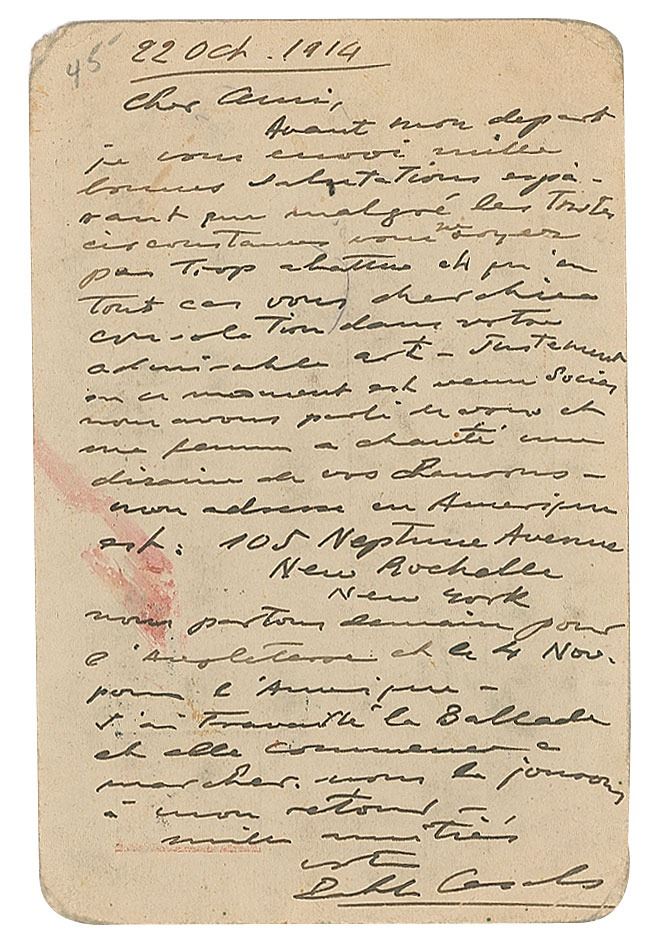 45
22 Oct. 1914
Cher Ami,
Avant mon depart
je vous envoi mille
bonnes salutations espe-
rant que malgré les tristes
circonstances vous ne soyez
pas trop abattu et qu'en
tout cas vous cherchiez
consolation dans votre
admirable art - Justement
en ce moment est venu
nous avons parlé de vous et
ma femme a chanté une
dizaine de vos Chansons -
mon adresse en Amerique
est: 105 Neptune Avenue
New Rochelle
New York
nous partons demain pour
l'Angleterre et le 4 Nov.
pour l'Amerique -
J'ai travaillé la Ballade
et elle commence a
marcher. nous la jouerons
à mon retour -
mille amitiés
Casals